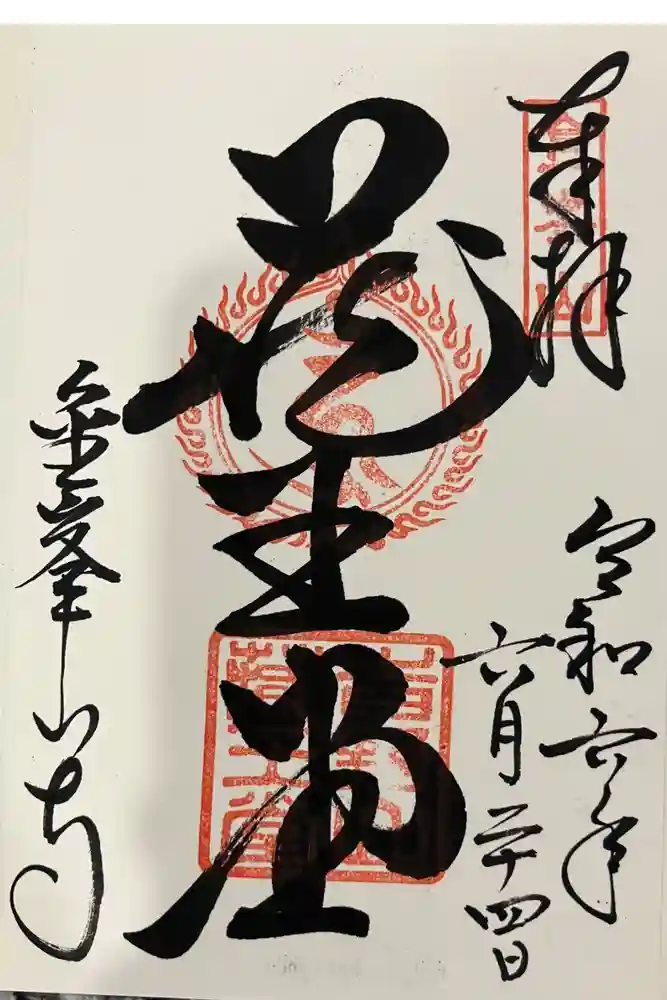 奉拝
令和六年
六月二十四日
蔵王堂
金峯山寺